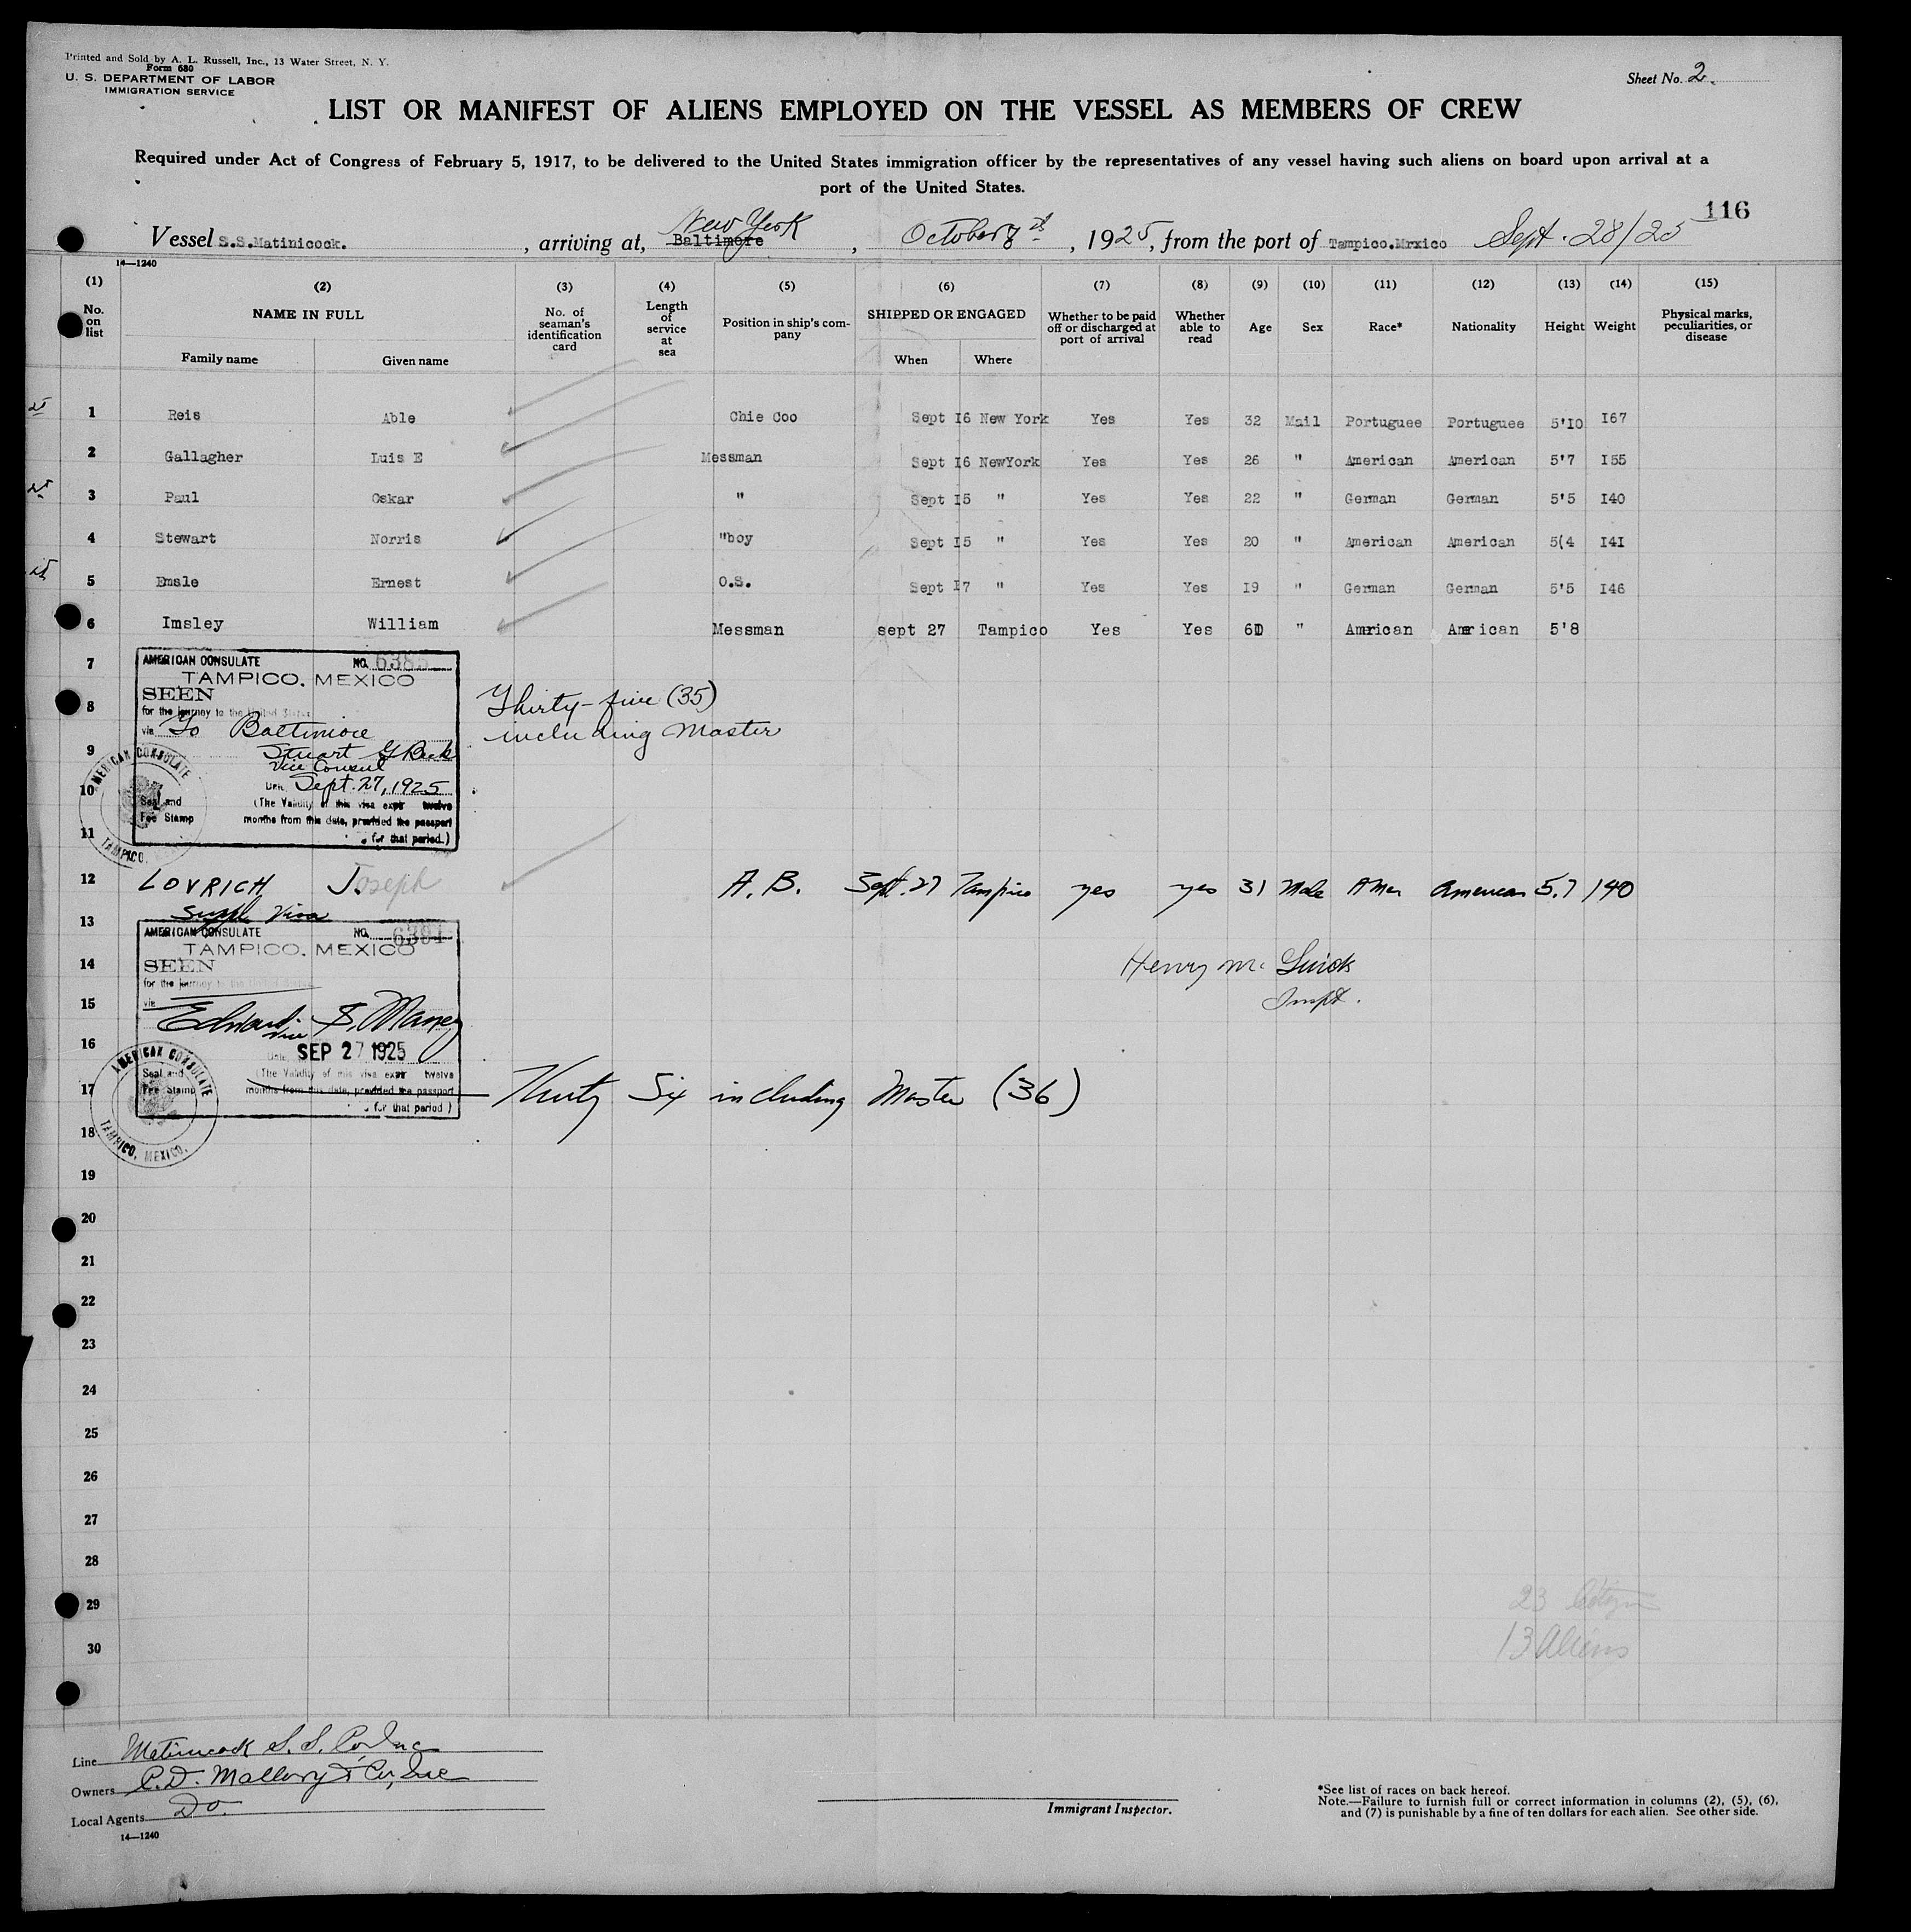 Printed and Sold by A. L. Russell, Inc., 13 Water Street, N. Y.
Form 680
U. S. DEPARTMENT OF LABOR
IMMIGRATION SERVICE
Sheet No. 2.
LIST OR MANIFEST OF ALIENS EMPLOYED ON THE VESSEL AS MEMBERS OF CREW
Required under Act of Congress of February 5, 1917, to be delivered to the United States immigration officer by the representatives of any vessel having such aliens on board upon arrival at a
port of the United States.
116
New York
Vessel S.S.Matinicock. , arriving at, Baltimore , October , 1925, from the port of Tampico.Mrxico Sept. 28/25
14—1240
(1) (2) (3) (4) (5) (6) (7) (8) (9) (10) (11) (12) (13) (14) (15)
No. on list NAME IN FULL No. of seaman's identification card Length of service at sea Position in ship's company SHIPPED OR ENGAGED Whether to be paid off or discharged at port of arrival Whether able to read Age Sex Race* Nationality Height Weight Physical marks, peculiarities, or disease
Family name Given name When Where
1 Reis Able Chie Coo Sept I6 New York Yes Yes 32 Mail Portuguee Portuguee 5'IO I67
2 Gallagher Luis E Messman Sept I6 NewYork Yes Yes 26 " American American 5'7 I55
3 Paul Oskar " Sept I5 " Yes Yes 22 " German German 5'5 I40
4 Stewart Norris "boy Sept I5 " Yes Yes 20 " American American 5(4 I4I
5 Emsle Ernest O.S. Sept I7 " Yes Yes I9 " German German 5'5 I46
6 Imsley William Messman sept 27 Tampico Yes Yes " American American 5'8
7 AMERICAN CONSULATE NO. 6385
TAMPICO. MEXICO
SEEN
for the journey to the United States
8 Thirty-five (35)
via To Baltimore
including Master
9 Stuart G Beck
Vice Consul
10 Date Sept. 27, 1925
Seal and Fee Stamp
(The Validity of this visa expir twelve
months from this date, provided the passport
for that period.)
AMERICAN CONSULATE
TAMPICO.
11
12 LOVRICH Joseph A.B. Sept. 27 Tampico yes yes 31 Male Amer American 5.7 140
Suppl Visa
13 AMERICAN CONSULATE NO. 6391
TAMPICO. MEXICO
14 SEEN
for the journey to the United States
Henry Mc
Inspt.
15 via
Edward S. Maney
16 Date SEP 27 1925
Seal and Fee Stamp
(The Validity of this visa expir twelve
17 months from this date, provided the passport
for that period)
Thirty Six including Master (36)
AMERICAN CONSULATE
TAMPICO, MEXICO.
18
19
20
21
22
23
24
25
26
27
28
29
30
23 Citizens
13 Aliens
Line Matinicock S.S. Co Inc
Owners C.D. Mallory & Co, Inc
Local Agents Do.
14—1240
Immigrant Inspector.
*See list of races on back hereof.
Note.—Failure to furnish full or correct information in columns (2), (5), (6),
and (7) is punishable by a fine of ten dollars for each alien. See other side.